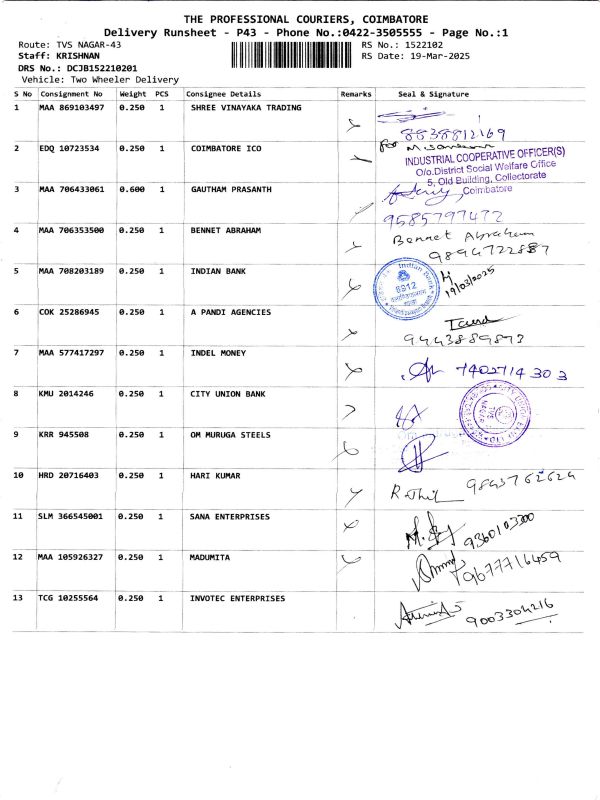 THE PROFESSIONAL COURIERS, COIMBATORE
Delivery Runsheet - P43 - Phone No.:0422-3505555 - Page No.:1
Route: TVS NAGAR-43 RS No.: 1522102
Staff: KRISHNAN RS Date: 19-Mar-2025
DRS No.: DCJB152210201
Vehicle: Two Wheeler Delivery
S No Consignment No Weight PCS Consignee Details Remarks Seal & Signature
1 MAA 869103497 0.250 1 SHREE VINAYAKA TRADING
8838812169
2 EDQ 10723534 0.250 1 COIMBATORE ICO
for
INDUSTRIAL COOPERATIVE OFFICER(S)
O/o.District Social Welfare Office
5, Old Building, Collectorate
Coimbatore
3 MAA 706433061 0.600 1 GAUTHAM PRASANTH
9585797472
4 MAA 706353500 0.250 1 BENNET ABRAHAM
Bennet Abraham
9894722887
5 MAA 708203189 0.250 1 INDIAN BANK
Indian Bank
8912
19/03/2025
6 COK 25286945 0.250 1 A PANDI AGENCIES
9443889873
7 MAA 577417297 0.250 1 INDEL MONEY
7402714303
8 KMU 2014246 0.250 1 CITY UNION BANK
CITY UNION BANK LTD
TVS NAGAR
9 KRR 945508 0.250 1 OM MURUGA STEELS
10 HRD 20716403 0.250 1 HARI KUMAR
9843762624
11 SLM 366545001 0.250 1 SANA ENTERPRISES
9360103300
12 MAA 105926327 0.250 1 MADUMITA
9677716459
13 TCG 10255564 0.250 1 INVOTEC ENTERPRISES
9003304216